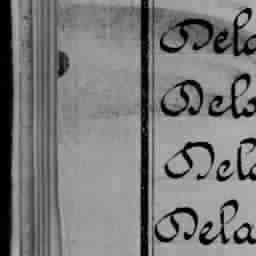 Dela
Dela
Dela
Dela